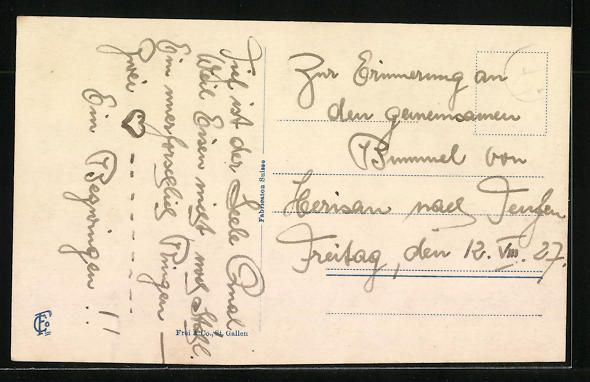 Tief ist der Seele Qual
Weil Eisen nicht, noch Stahl.
Ein unerforschlich Ringen —
Zwei
Ein Bezwingen !!
Fabrication Suisse
Frei & Co., St. Gallen
Zur Erinnerung an
den gemeinsamen
Bummel von
Herisau nach Teufen
Freitag, den 12. VIII. 27.